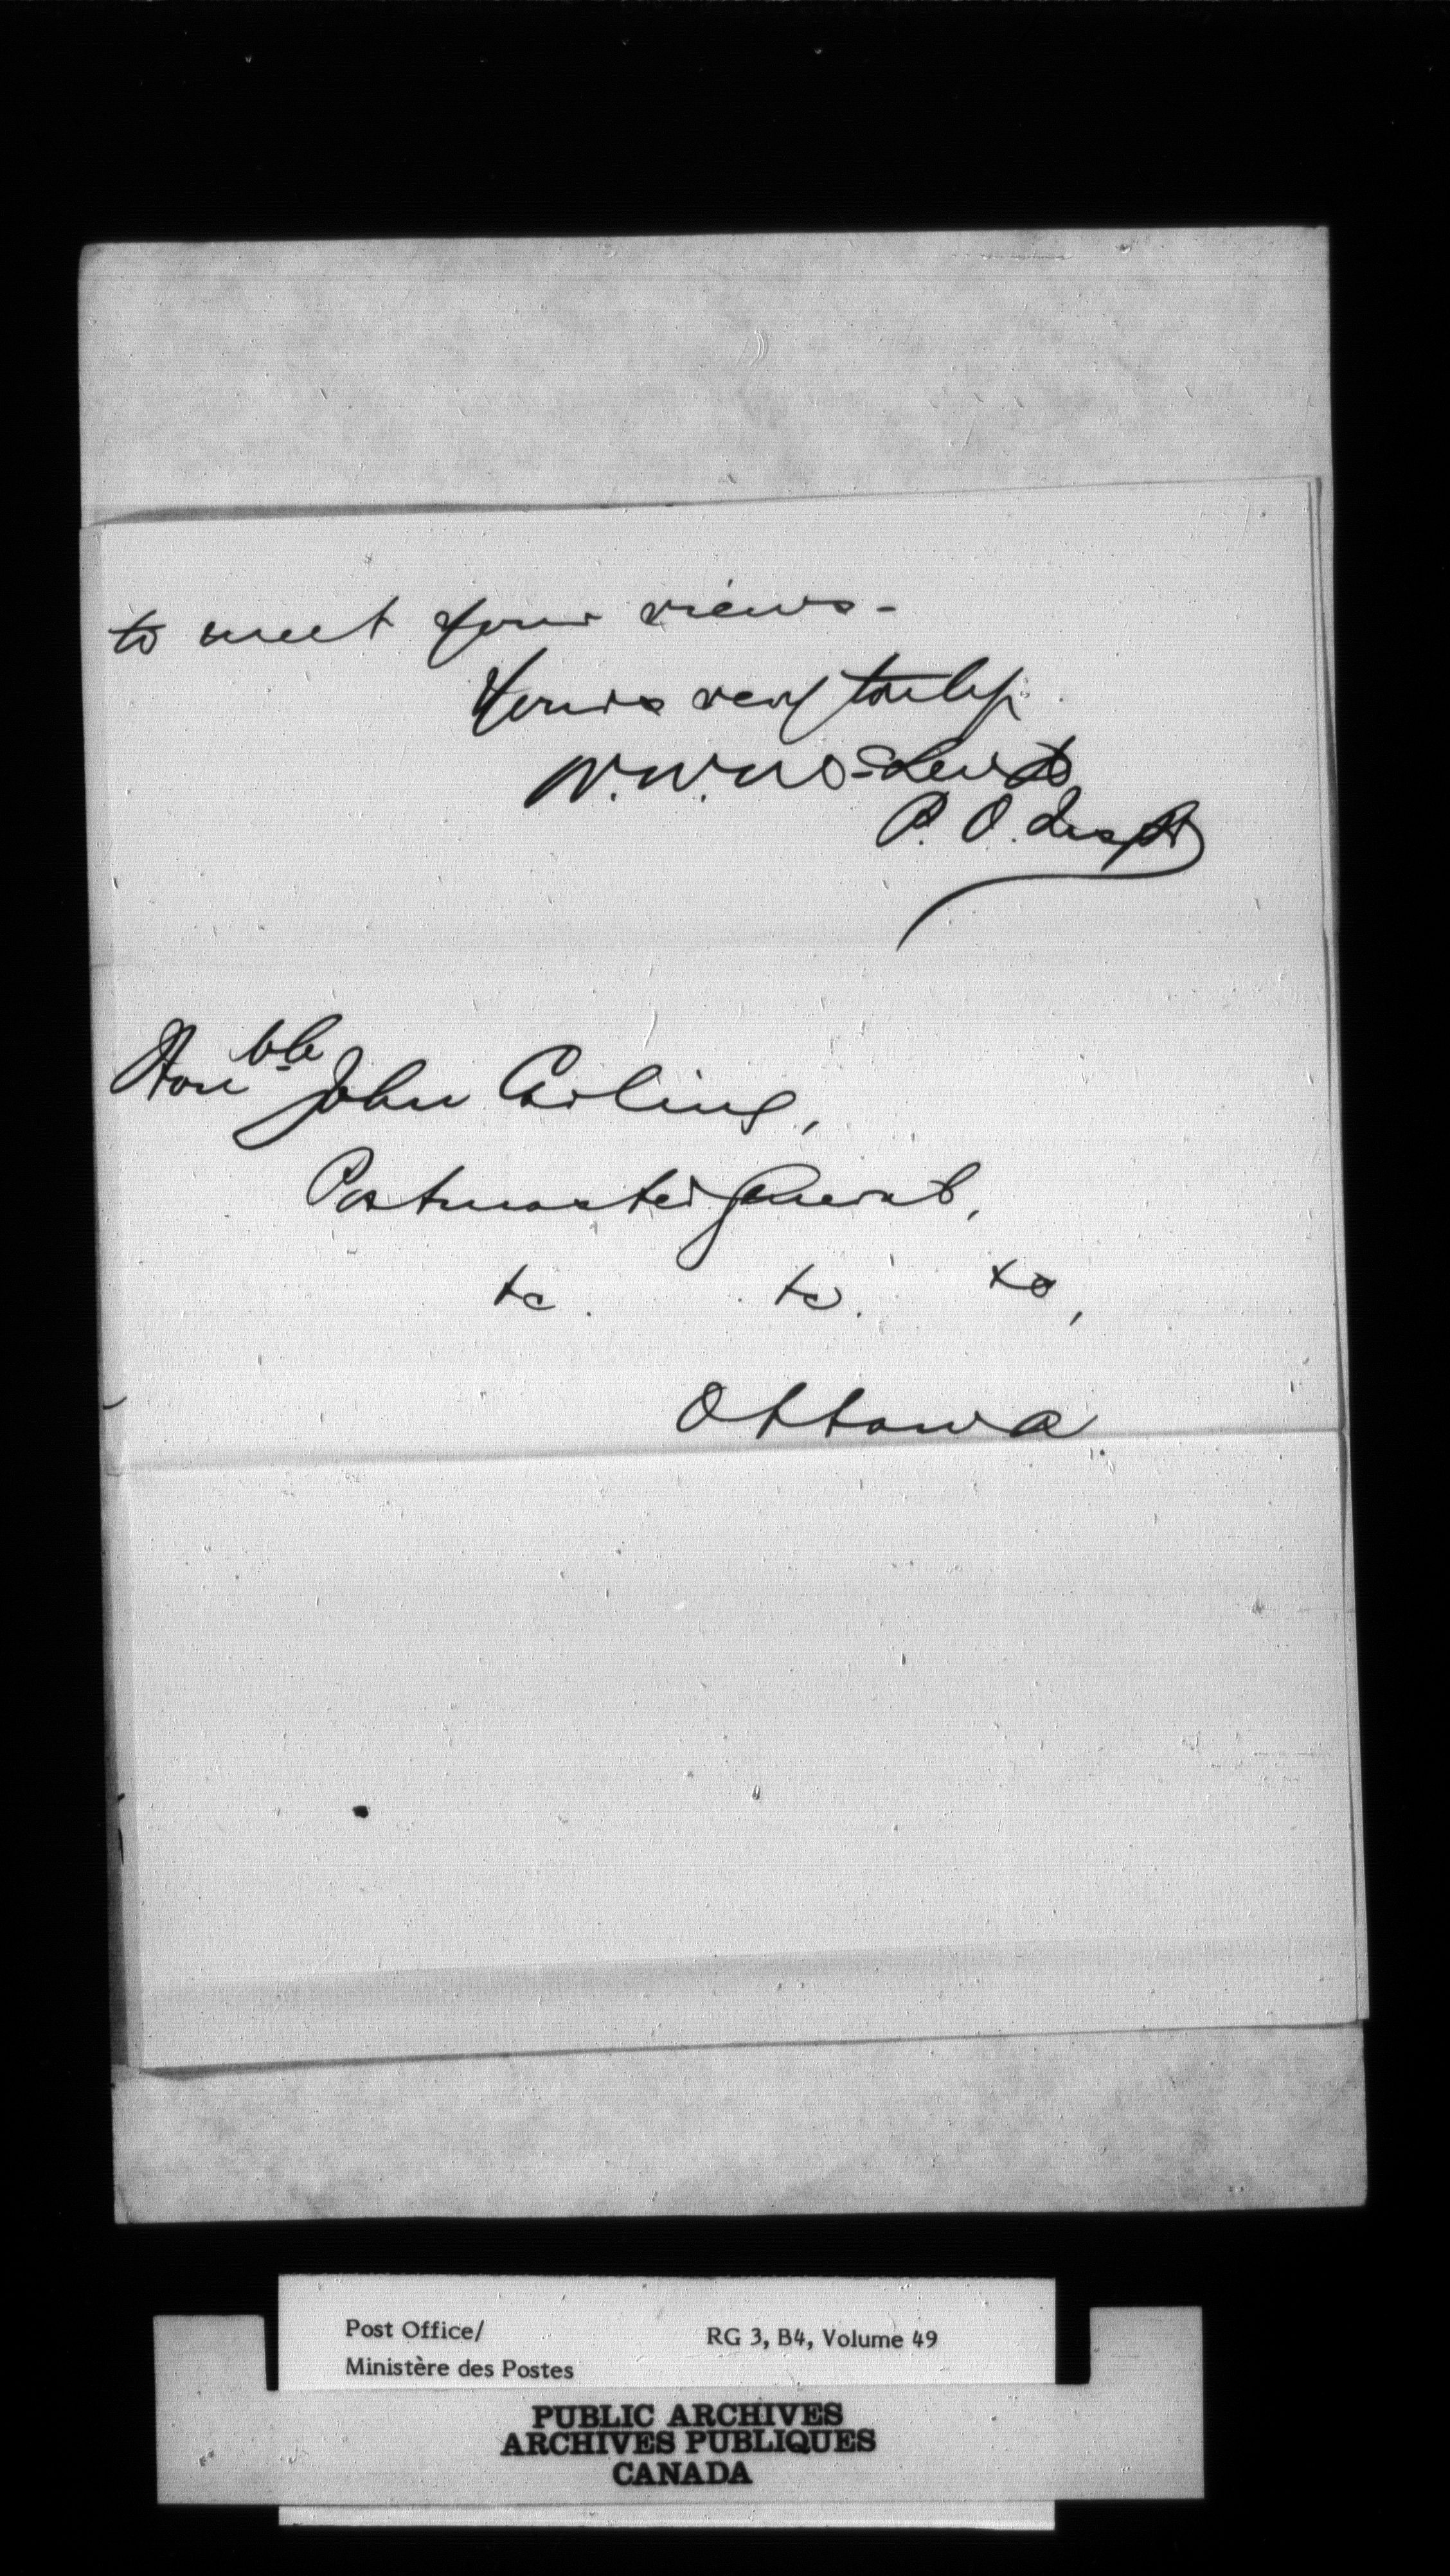 to meet your views -
Yours very truly
W.W.
P. O. Inspr
Honble John Carling,
Postmaster General,
&c. &c. &c,
Ottawa.
Post Office/
Ministère des Postes
RG 3, B4, Volume 49
PUBLIC ARCHIVES
ARCHIVES PUBLIQUES
CANADA